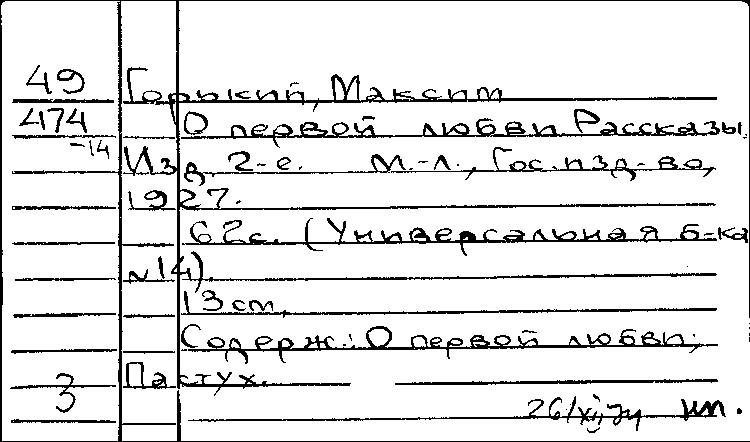 49 Горький, Максим
474 О первой любви. Рассказы.
-14 Изд. 2-е. М.-Л., Гос. изд-во,
1927.
62с. (Универсальная б-ка
N14).
13 см.
Содерж.: О первой любви;
3 Пастух.
26/XII